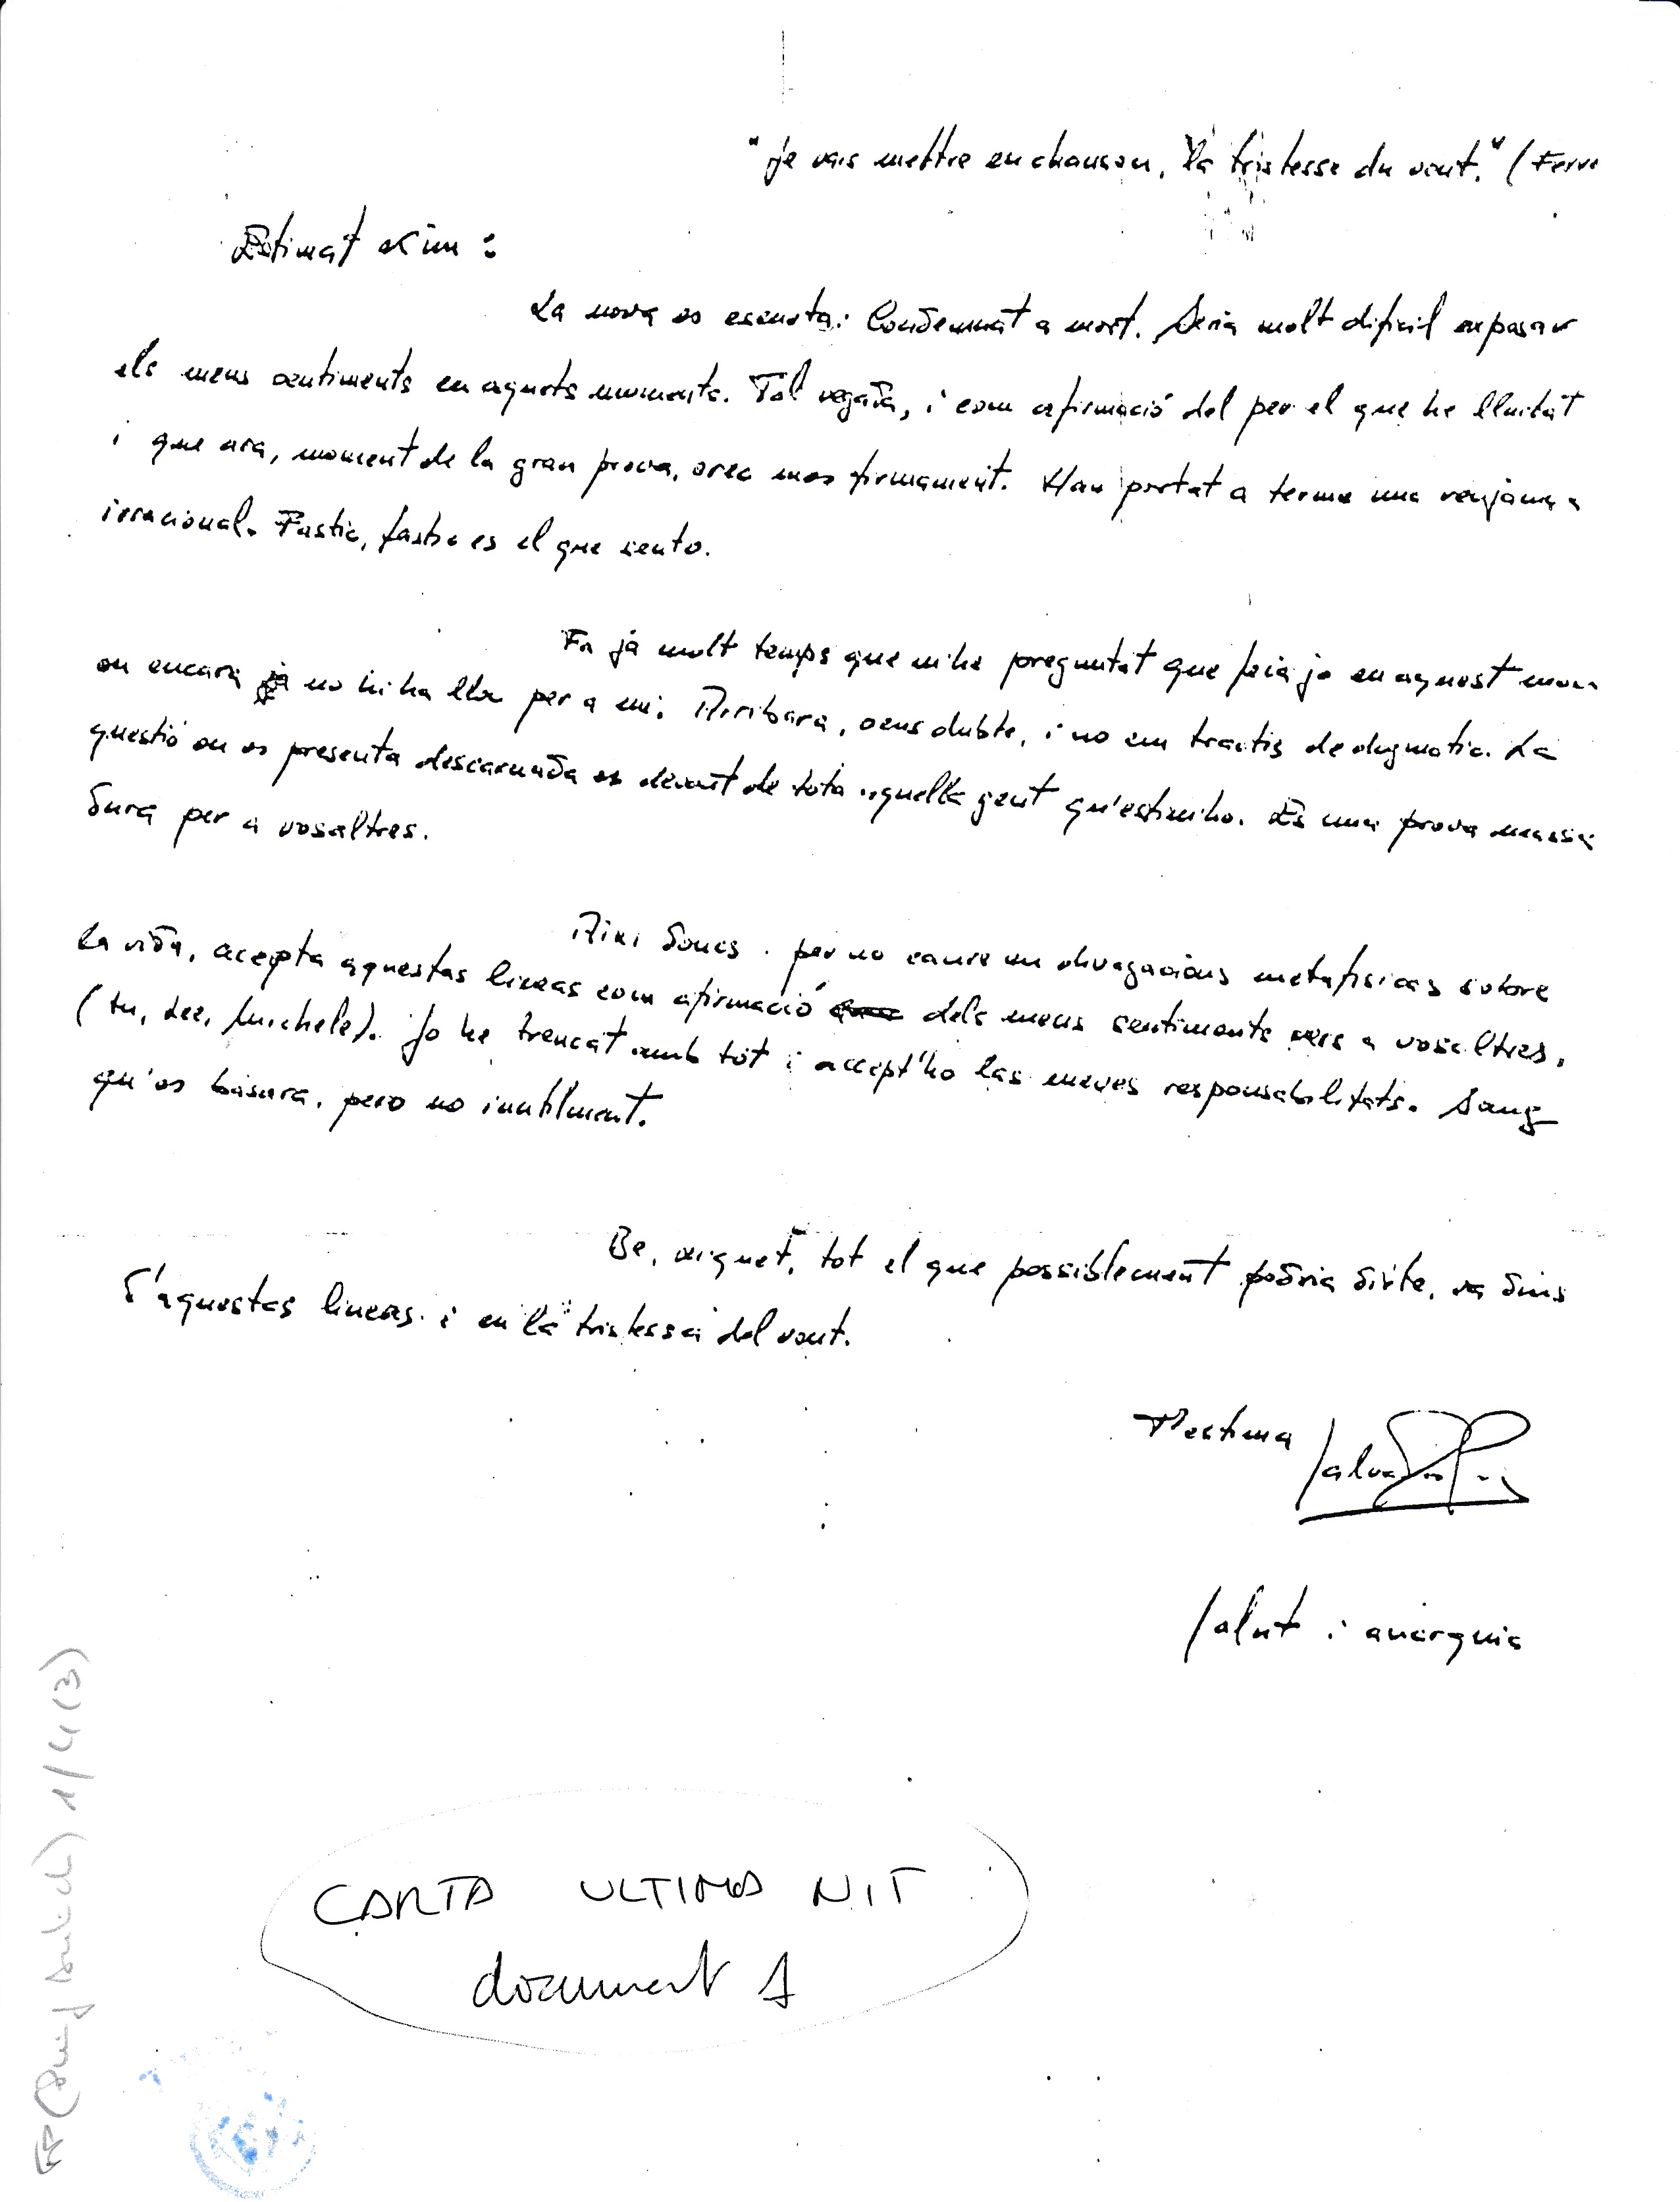 "je vais mettre en chanson, la tristesse du vent." (Ferre
Estimat Kim:
La nova es escueta: Condemnat a mort. Seria molt dificil exposar
els meus sentiments en aquets moments. Tal vegada, i com afirmació del per el que he lluitat
i que ara, moment de la gran prova, crec mes firmament. Han portat a terme una venjança
irracional. Fastic, fastic es el que sento.
Fa ja molt temps que m'he preguntat que feia jo en aquest mon
on encara ja no hi ha lloc per a mi. Arribara, sens dubte, i no em tractis de dogmatic. La
questió on es presenta descarnada es devant de tota aquella gent qu'estim'ho. Es una prova massa
dura per a vosaltres.
Aixi doncs. per no caure en divagacions metafisicas sobre
la vida, accepta aquestas lineas com afirmació dels meus sentiments vers a vosaltres.
(tu, Lee, Michele). Jo he trencat amb tot i accept'ho las meves responsabilitats. Sang
qu'es basura, pero no inutilment.
Be, xiquet, tot el que possiblement podria dirte, va dins
d'aquestas lineas. i en la tristessa del vent.
T'estima Salvador Puig
Salut i anarquia
CARTA ULTIMA NIT
document 1
1/4(3)